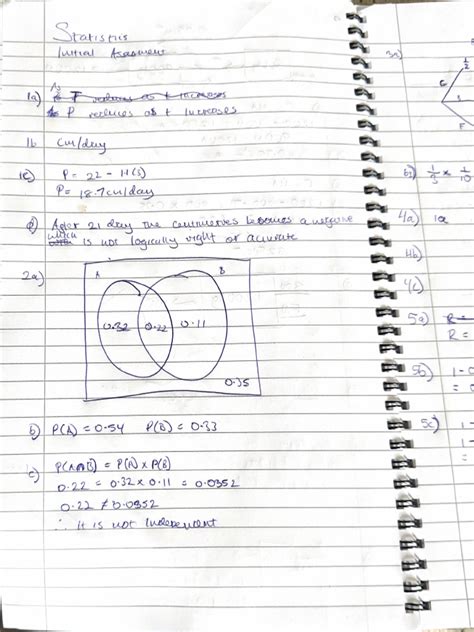 Statistics
Initial Assessment
1a) As T reduces as t increases
P reduces as t increases
1b cm/day
1c) P = 22 - 1.1(3)
P = 18.7 cm/day
d) After 21 day the centimetres becomes a negative
which is not logically right or accurate
2a)
A B
0.32 0.22 0.11
0.35
b) P(A) = 0.54 P(B) = 0.33
c) P(A∩B) = P(A) x P(B)
0.22 = 0.32 x 0.11 = 0.0352
0.22 ≠ 0.0352
∴ it is not independent
3a)
1/2
G
F
b) 1/5 x 1/10
4a) 1a
4b)
4c)
5a) R =
R =
5b) 1 - 0
=
5c) 1 -
1 -
=